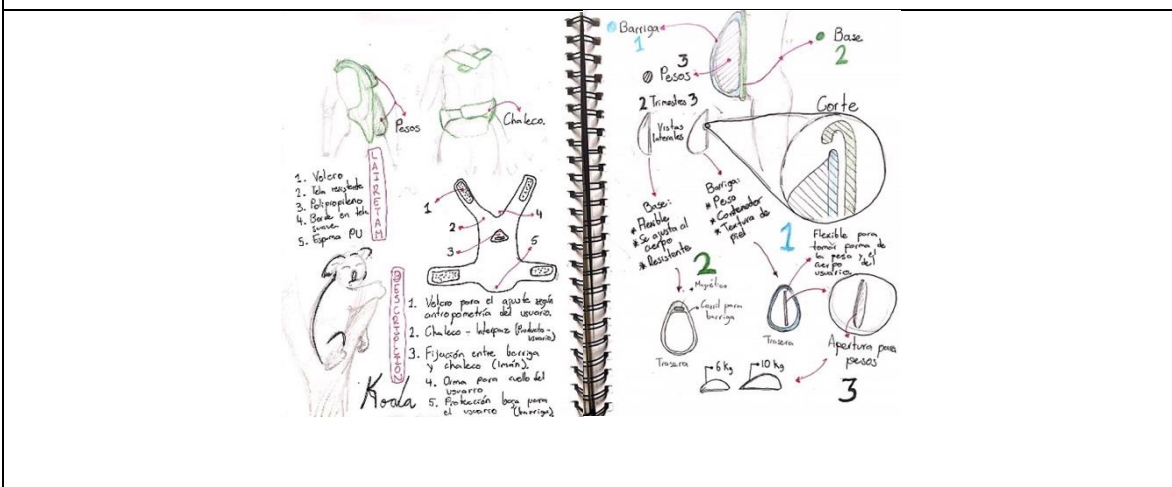 Pesos
Chaleco.
1. Velcro
2. Tela resistente
3. Polipropileno
4. Borde en tela
suave
5. Espuma PU
MATERIAL
1
2
3
4
5
DESCRIPCION
1. Velcro para el ajuste según
antropometría del usuario.
2. Chaleco - Interfaz (Producto-
usuario)
3. Fijación entre barriga
y chaleco (Imán).
4. Orma para cuello del
usuario
5. Protección baja para
el usuario (barriga)
Koala
Barriga
1
Base
2
3
Pesos
2 Trimestres 3
Vistas
laterales
Corte
Base:
* Flexible
* Se ajusta al
cuerpo
* Resistente
2
Barriga:
* Peso
* Contenedor
* Textura de
piel
1
Flexible para
tomar forma de
la pesa y el
cuerpo del
usuario.
Magnético
Carril para
barriga
Trasera
Trasera
Apertura para
pesos
6 Kg
10 Kg
3